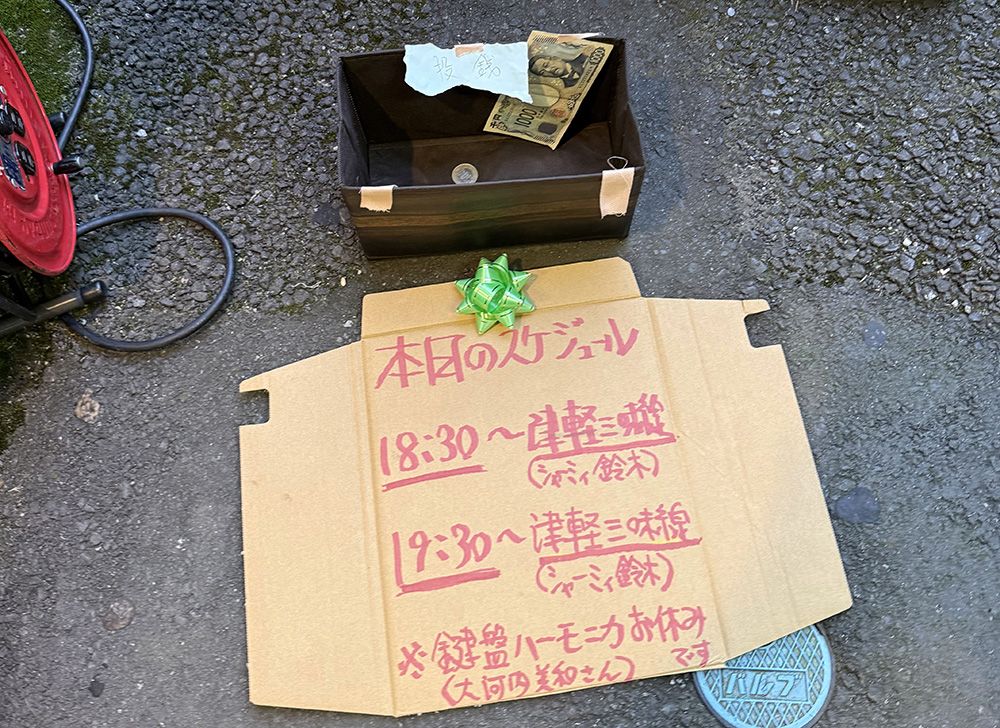 投銭
1000
千円
1000
本日のスケジュール
18:30〜津軽三味線
(シャーミィ鈴木)
19:30〜津軽三味線
(シャーミィ鈴木)
※鍵盤ハーモニカお休み
です
(大河内美和さん)
バルブ